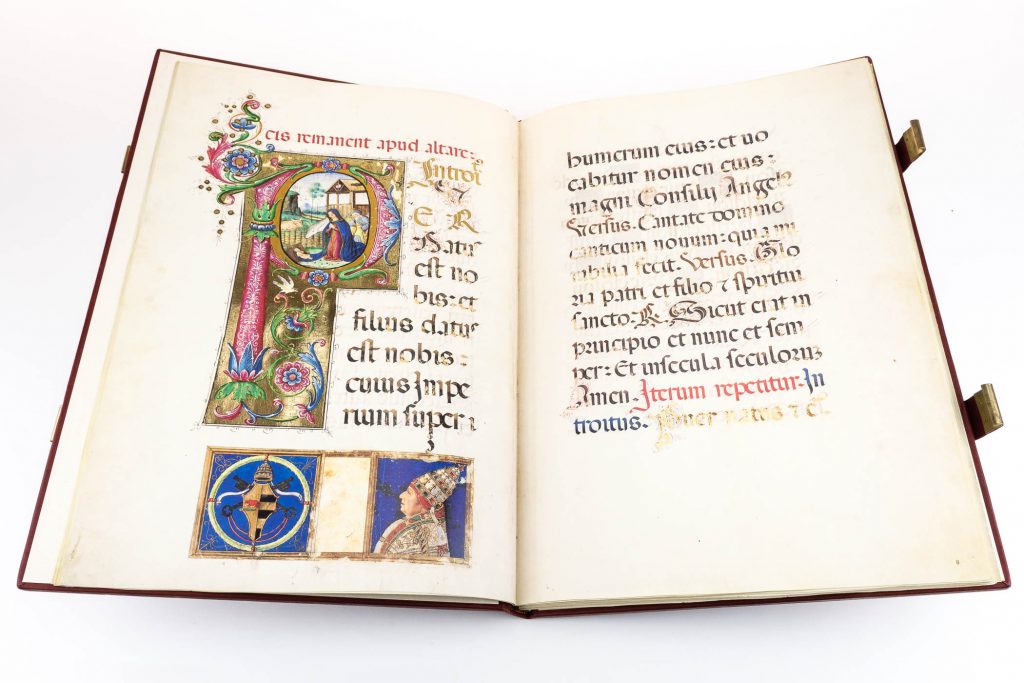 eis remanent apud altare:
Introi
E R
Natus
est no
bis: et
filius datus
est nobis:
cuius Impe
rium super
humerum eius: et uo
cabitur nomen eius:
magni Consilij Angelus
Versus. Cantate domino
canticum nouum: quia mi
rabilia fecit. Versus. Glo
ria patri et filio et spiritui
sancto. R. Sicut erat in
principio et nunc et sem
per: Et insecula seculorum
Amen. Iterum repetitur. In
troitus. Puer natus e